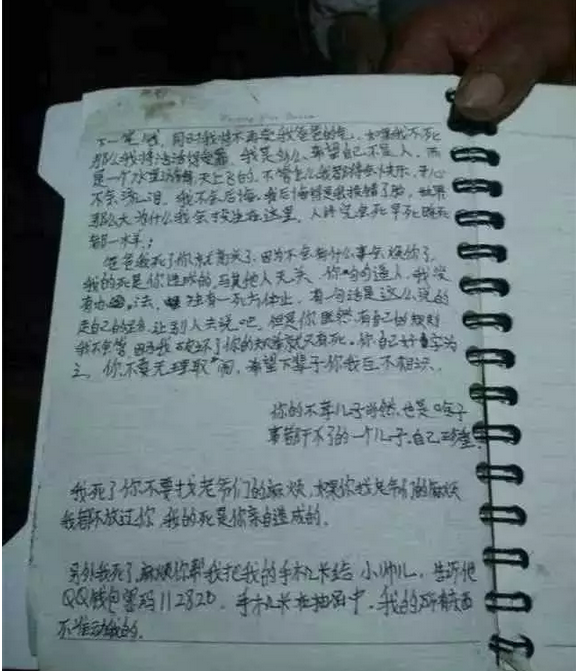 下一笔钱,同时我将不再受我爸爸的气,如果我不死
那么我将活活得受罪,我是多么希望自己不是人,而
是一个水里游得,天上飞的,不管怎么我都得会快乐,开心
不会流泪,我不会后悔,我后悔得是我投错了胎,世界
那么大为什么我会投生在这里,人终究会死早死晚死
都一样;
爸爸我死了你就高兴了,因为不会有什么事会烦你了,
我的死是你造成的与其他人无关,你句句逼人,我实
有办法,独有一死方休止,有一句话是这么说的
走自己的路,让别人去说吧,但是你既然有自己的规则
我不会管,因为我破坏了你的规则就只有死,你自己好自为
之,你不要无理取闹,希望下辈子你我互不相识,
你的不孝儿子当然,也是啥子
事都干不了的一个儿子,自己
我死了你不要找老爷们的麻烦,如果你找老爷们的麻烦
我都不放过你,我的死是你亲自造成的,
另外我死了,麻烦你帮我把我的手机卡给小帅儿,告诉他
QQ钱包密码112820,手机卡在抽屉中,我的所有东西
不准动我的,